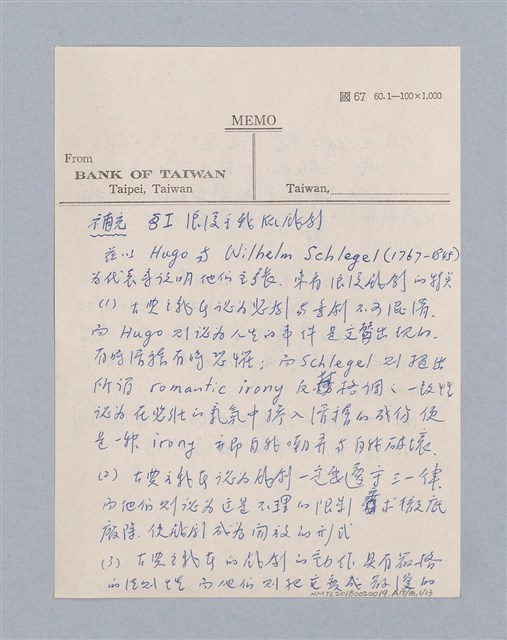 國 67 60. 1—100×1,000
MEMO
From
BANK OF TAIWAN
Taipei, Taiwan
Taiwan,
補充 §I 浪漫主義底戲劇
茲以 Hugo 與 Wilhelm Schlegel (1767-1845)
為代表來說明他們主張. 來看浪漫戲劇的特點
(1) 古典主義者認為悲劇與喜劇不可混淆.
而 Hugo 則認為人生的事件是交替出現的.
有時滑稽有時恐怖; 而 Schlegel 則提出
所謂 romantic irony 反 格調之一致性
認為在悲壯的氣氛中摻入滑稽的成份便
是一種 irony 亦即自我嘲弄與自我破壞.
(2) 古典主義者認為戲劇一定要遵守三一律.
而他們則認為這是不合理的限制 求徹底
廢除. 使戲劇成為開放的形式
(3) 古典主義者的戲劇的動作具有嚴格
的法則性 而他們則把它變成 的
NMTL20180020019